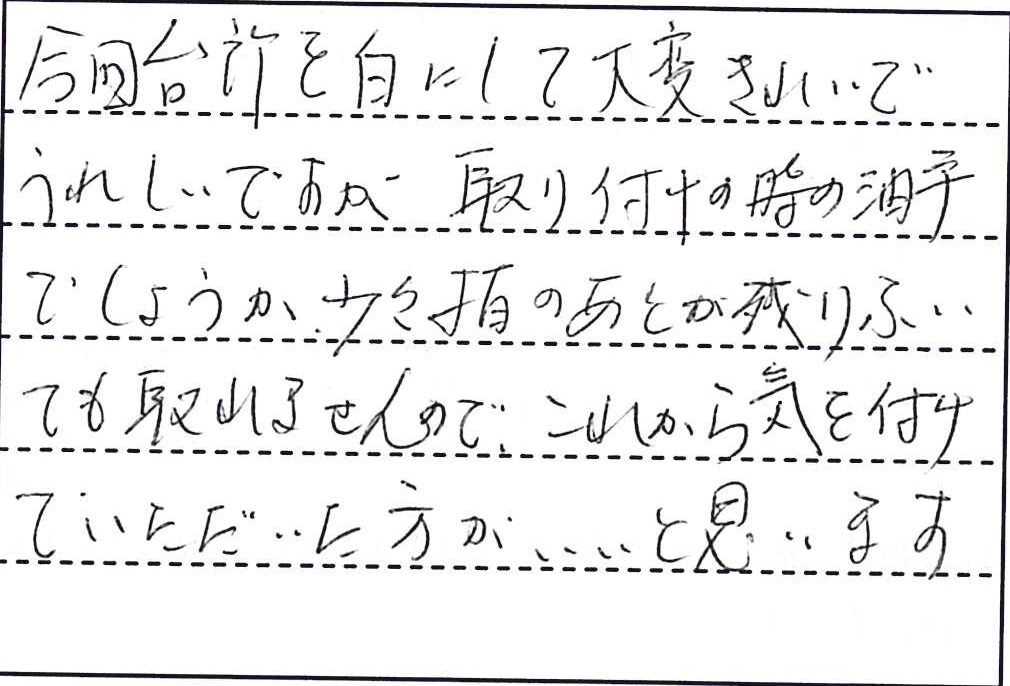 今回台所を白にして大変きれいで
うれしいですが 取り付けの時の油手
でしょうか、少々指のあとが残りふい
ても取れませんので、これから気を付け
ていただいた方が、いいと思います